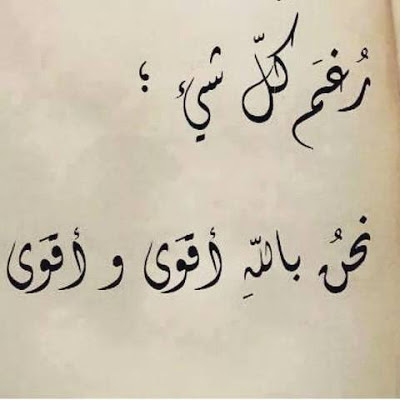 رُغَم كلّ شيء ؛
نحنُ باللّهِ أقوَى و أقوَى